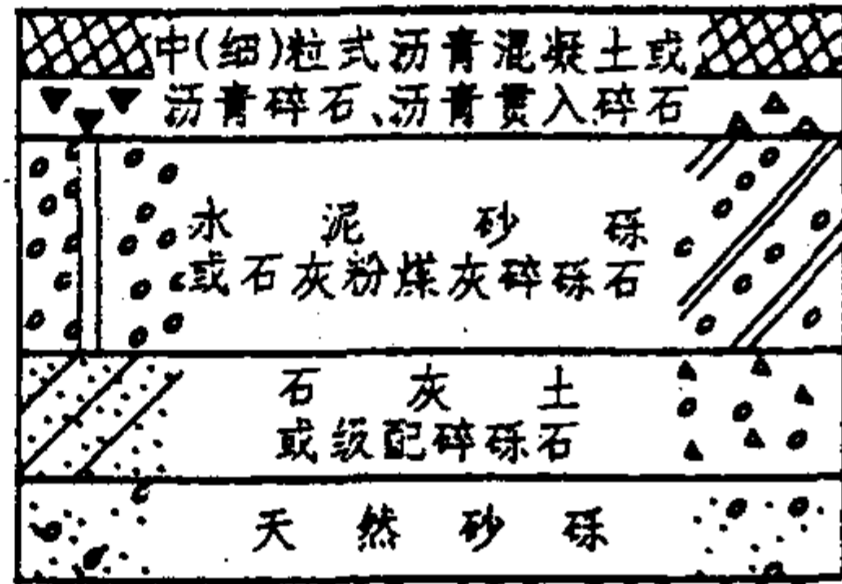 中(细)粒式沥青混凝土或
沥青碎石、沥青贯入碎石
水泥砂砾
或石灰粉煤灰碎砾石
石灰土
或级配碎砾石
天然砂砾